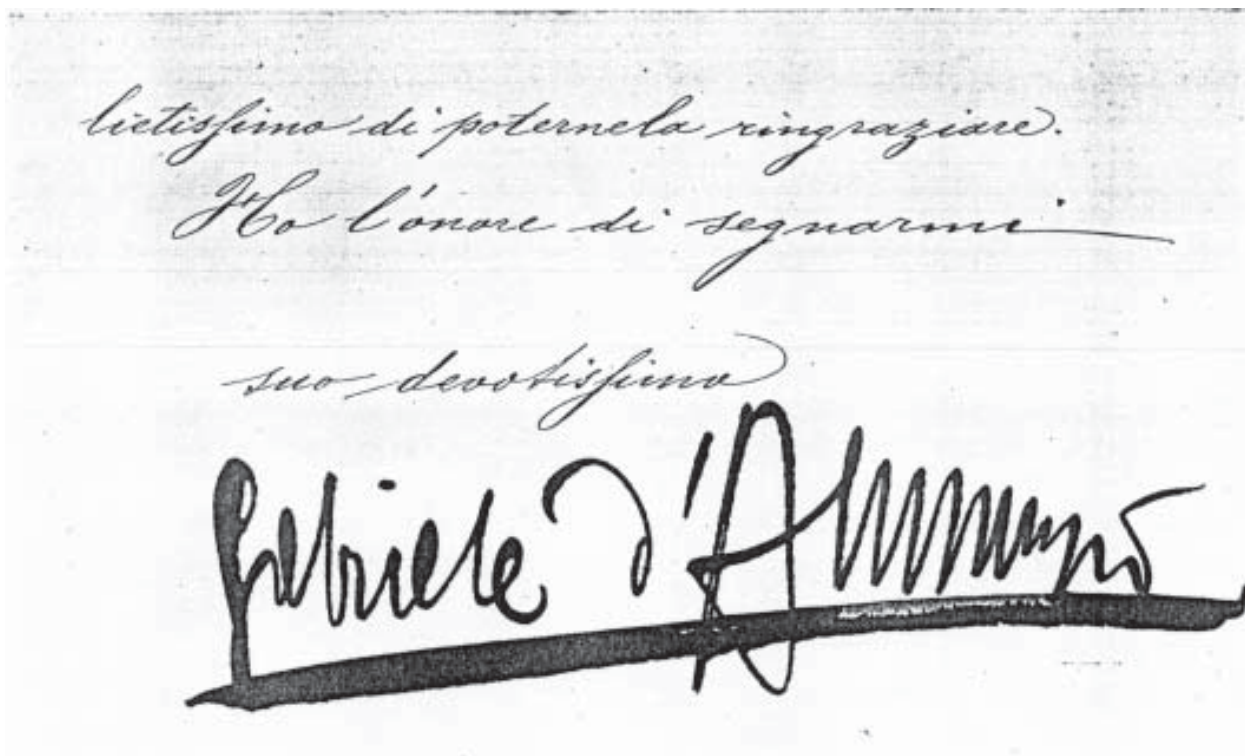 lietissimo di poternela ringraziare.
Ho l'onore di segnarmi
suo devotissimo
Gabriele d'Annunzio